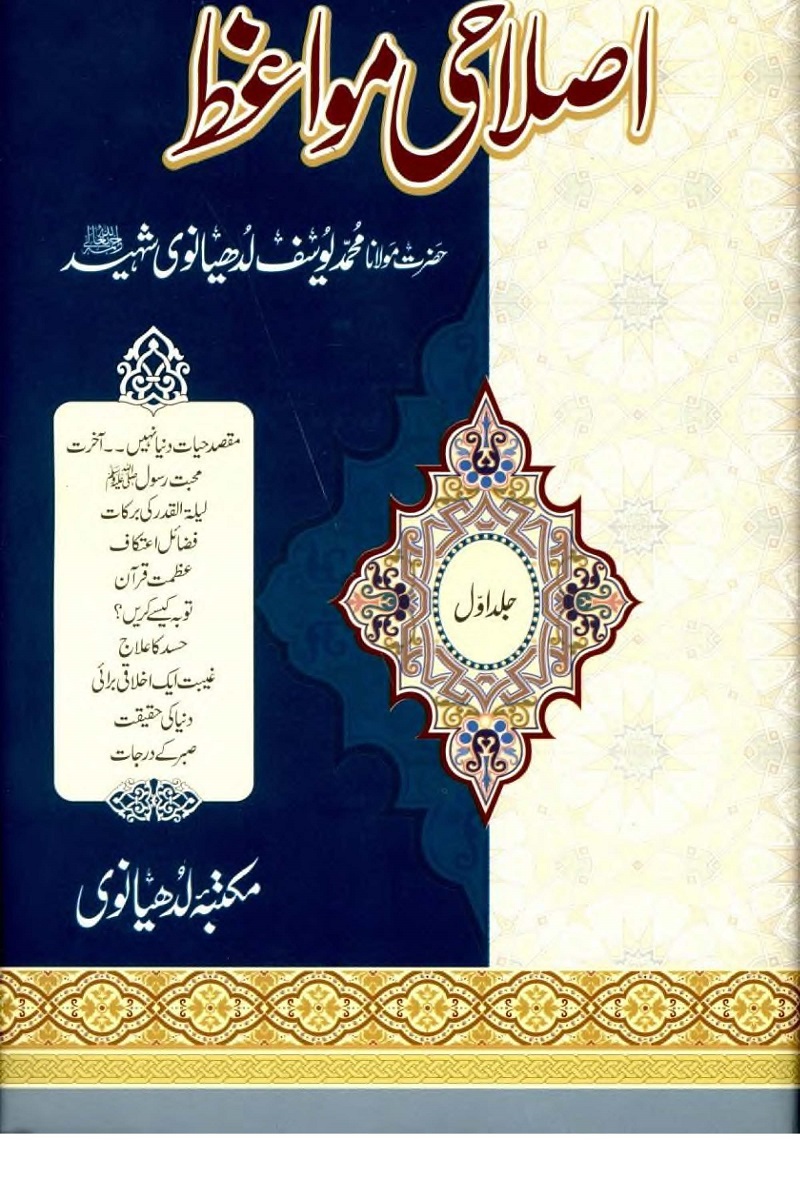 اصلاحی مواعظ
حضرت مولانا محمد یوسف لدھیانوی شہید رحمۃ اللہ تعالیٰ علیہ
مقصد حیات دنیا نہیں ۔۔ آخرت
محبت رسول ﷺ
لیلۃ القدر کی برکات
فضائل اعتکاف
عظمت قرآن
توبہ کیسے کریں؟
حسد کا علاج
غیبت ایک اخلاقی برائی
دنیا کی حقیقت
صبر کے درجات
جلد اوّل
مکتبۂ لدھیانوی